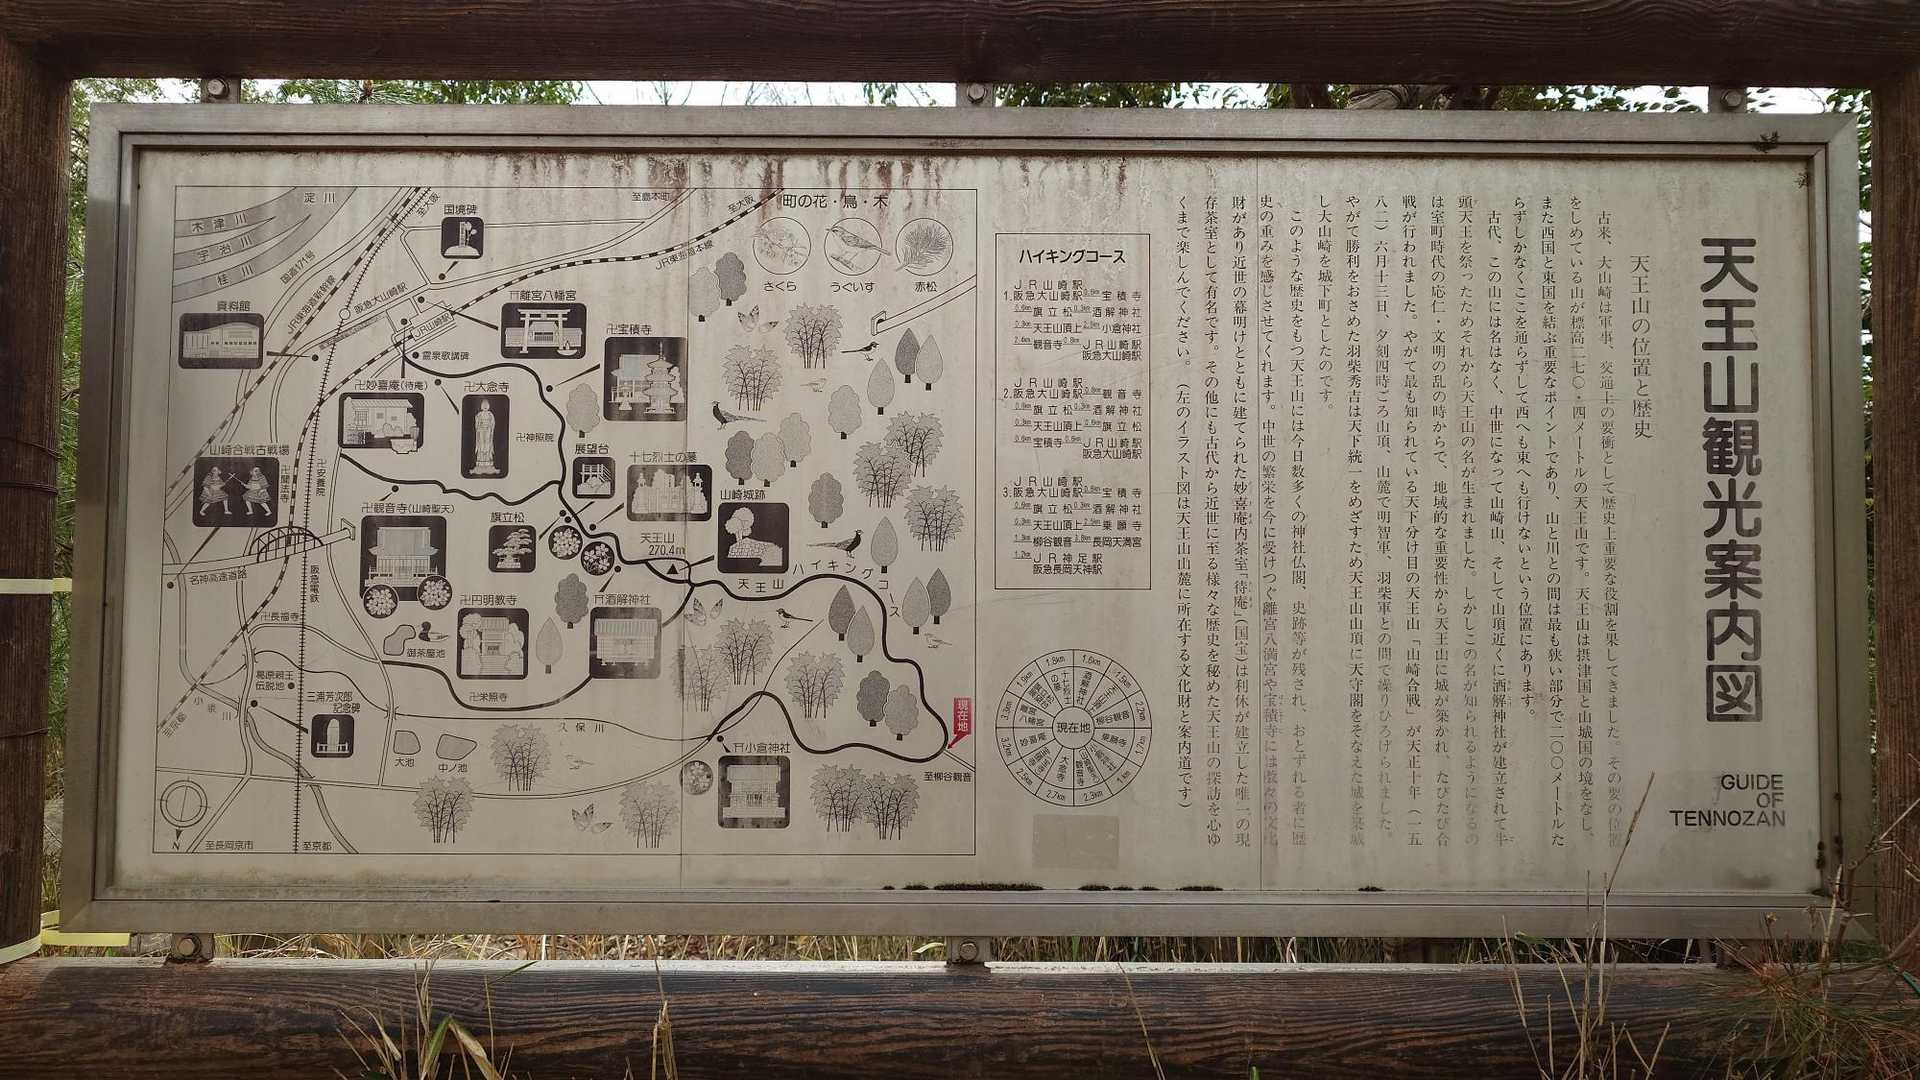 天王山観光案内図
GUIDE
OF
TENNOZAN
天王山の位置と歴史
古来、大山崎は軍事、交通上の要衝として歴史上重要な役割を果してきました。その要の位置
をしめている山が標高二七〇・四メートルの天王山です。天王山は摂津国と山城国の境をなし、
また西国と東国を結ぶ重要なポイントであり、山と川との間は最も狭い部分で二〇〇メートルた
らずしかなくここを通らずして西へも東へも行けないという位置にあります。
古代、この山には名はなく、中世になって山崎山、そして山頂近くに酒解神社が建立されて牛
頭天王を祭ったためそれから天王山の名が生まれました。しかしこの名が知られるようになるの
は室町時代の応仁・文明の乱の時からで、地域的な重要性から天王山に城が築かれ、たびたび合
戦が行われました。やがて最も知られている天下分け目の天王山「山崎合戦」が天正十年（一五
八二）六月十三日、夕刻四時ごろ山頂、山麓で明智軍、羽柴軍との間で繰りひろげられました。
やがて勝利をおさめた羽柴秀吉は天下統一をめざすため天王山山頂に天守閣をそなえた城を築城
し大山崎を城下町としたのです。
このような歴史をもつ天王山には今日数多くの神社仏閣、史跡等が残され、おとずれる者に歴
史の重みを感じさせてくれます。中世の繁栄を今に受けつぐ離宮八満宮や宝積寺には数々の文化
財があり近世の幕明けとともに建てられた妙喜庵内茶室「待庵」（国宝）は利休が建立した唯一の現
存茶室として有名です。その他にも古代から近世に至る様々な歴史を秘めた天王山の探訪を心ゆ
くまで楽しんでください。（左のイラスト図は天王山山麓に所在する文化財と案内道です）
ハイキングコース
JR山崎駅
1.阪急大山崎駅 0.6km 宝積寺
0.6km 旗立松 0.3km 酒解神社
0.3km 天王山頂上 2.5km 小倉神社
2.6km 観音寺 0.8km JR山崎駅
阪急大山崎駅
JR山崎駅
2.阪急大山崎駅 0.8km 観音寺
0.6km 旗立松 0.3km 酒解神社
0.3km 天王山頂上 0.6km 旗立松
0.6km 宝積寺 0.6km JR山崎駅
阪急大山崎駅
JR山崎駅
3.阪急大山崎駅 0.6km 宝積寺
0.6km 旗立松 0.3km 酒解神社
0.3km 天王山頂上 2.5km 乗願寺
1.3km 柳谷観音 3.8km 長岡天満宮
1.2km JR神足駅
阪急長岡天神駅
現在地
1.6km
酒解神社
1.5km
2.2km
柳谷観音
1.7km
乗願寺
1km
2.3km
観音寺
2.7km
大念寺
2.5km
3.2km
妙喜庵
3.3km
離宮八幡宮
1.9km
1.8km
十七烈士の墓
町の花・鳥・木
さくら
うぐいす
赤松
淀川
木津川
宇治川
桂川
国道171号
JR東海道新幹線
至大阪
国境碑
至島本町
至大阪
JR東海道本線
阪急大山崎駅
JR山崎駅
资料館
卍離宮八幡宮
霊泉歌講碑
卍宝積寺
卍妙喜庵(待庵)
卍大念寺
卍神照院
展望台
十七烈士の墓
山崎城跡
山崎合戦古戦場
卍聞法寺
卍安養院
卍観音寺(山崎聖天)
旗立松
天王山
270.4m
天王山ハイキングコース
名神高速道路
阪急電鉄
卍長福寺
御茶屋池
卍円明教寺
酒解神社
葛原親王
伝説地
三浦芳次郎
記念碑
小泉川
至京都
卍栄照寺
久保川
大池
中ノ池
小倉神社
現在地
至柳谷観音
N
至長岡京市
至京都